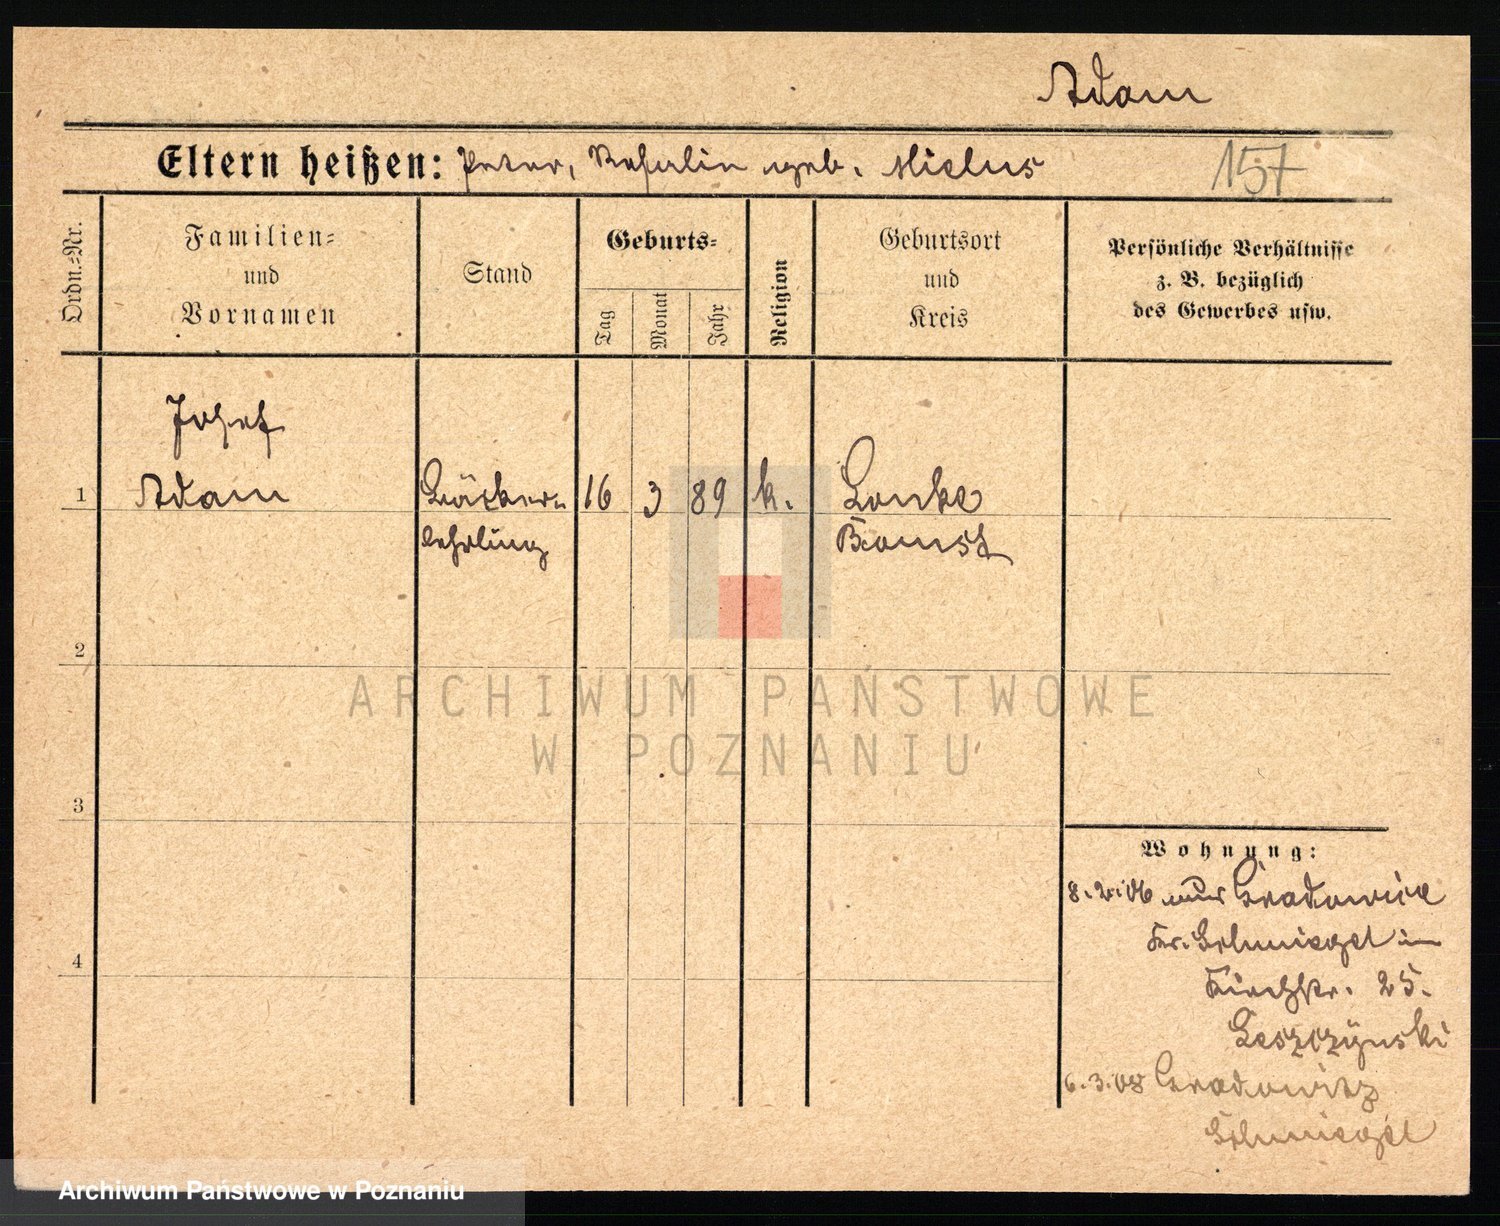 Adam
Eltern heißen: Peter, Rosalie geb. Mielus
157
Ordn.-Nr.
Familien-
und
Vornamen
Stand
Geburts-
Tag
Monat
Jahr
Religion
Geburtsort
und
Kreis
Persönliche Verhältnisse
z. B. bezüglich
des Gewerbes usw.
Josef
1 Adam Bäcker- 16 3 89 k. Lonke
lehrling Bomst
2
ARCHIWUM PAŃSTWOWE
W POZNANIU
3
Wohnung:
8.2.06 Gradowice
Kr. Schmiegel in
Kirchstr. 25.
Leszczynski
4
6.3.08 Gradowitz
Schmiegel
Archiwum Państwowe w Poznaniu